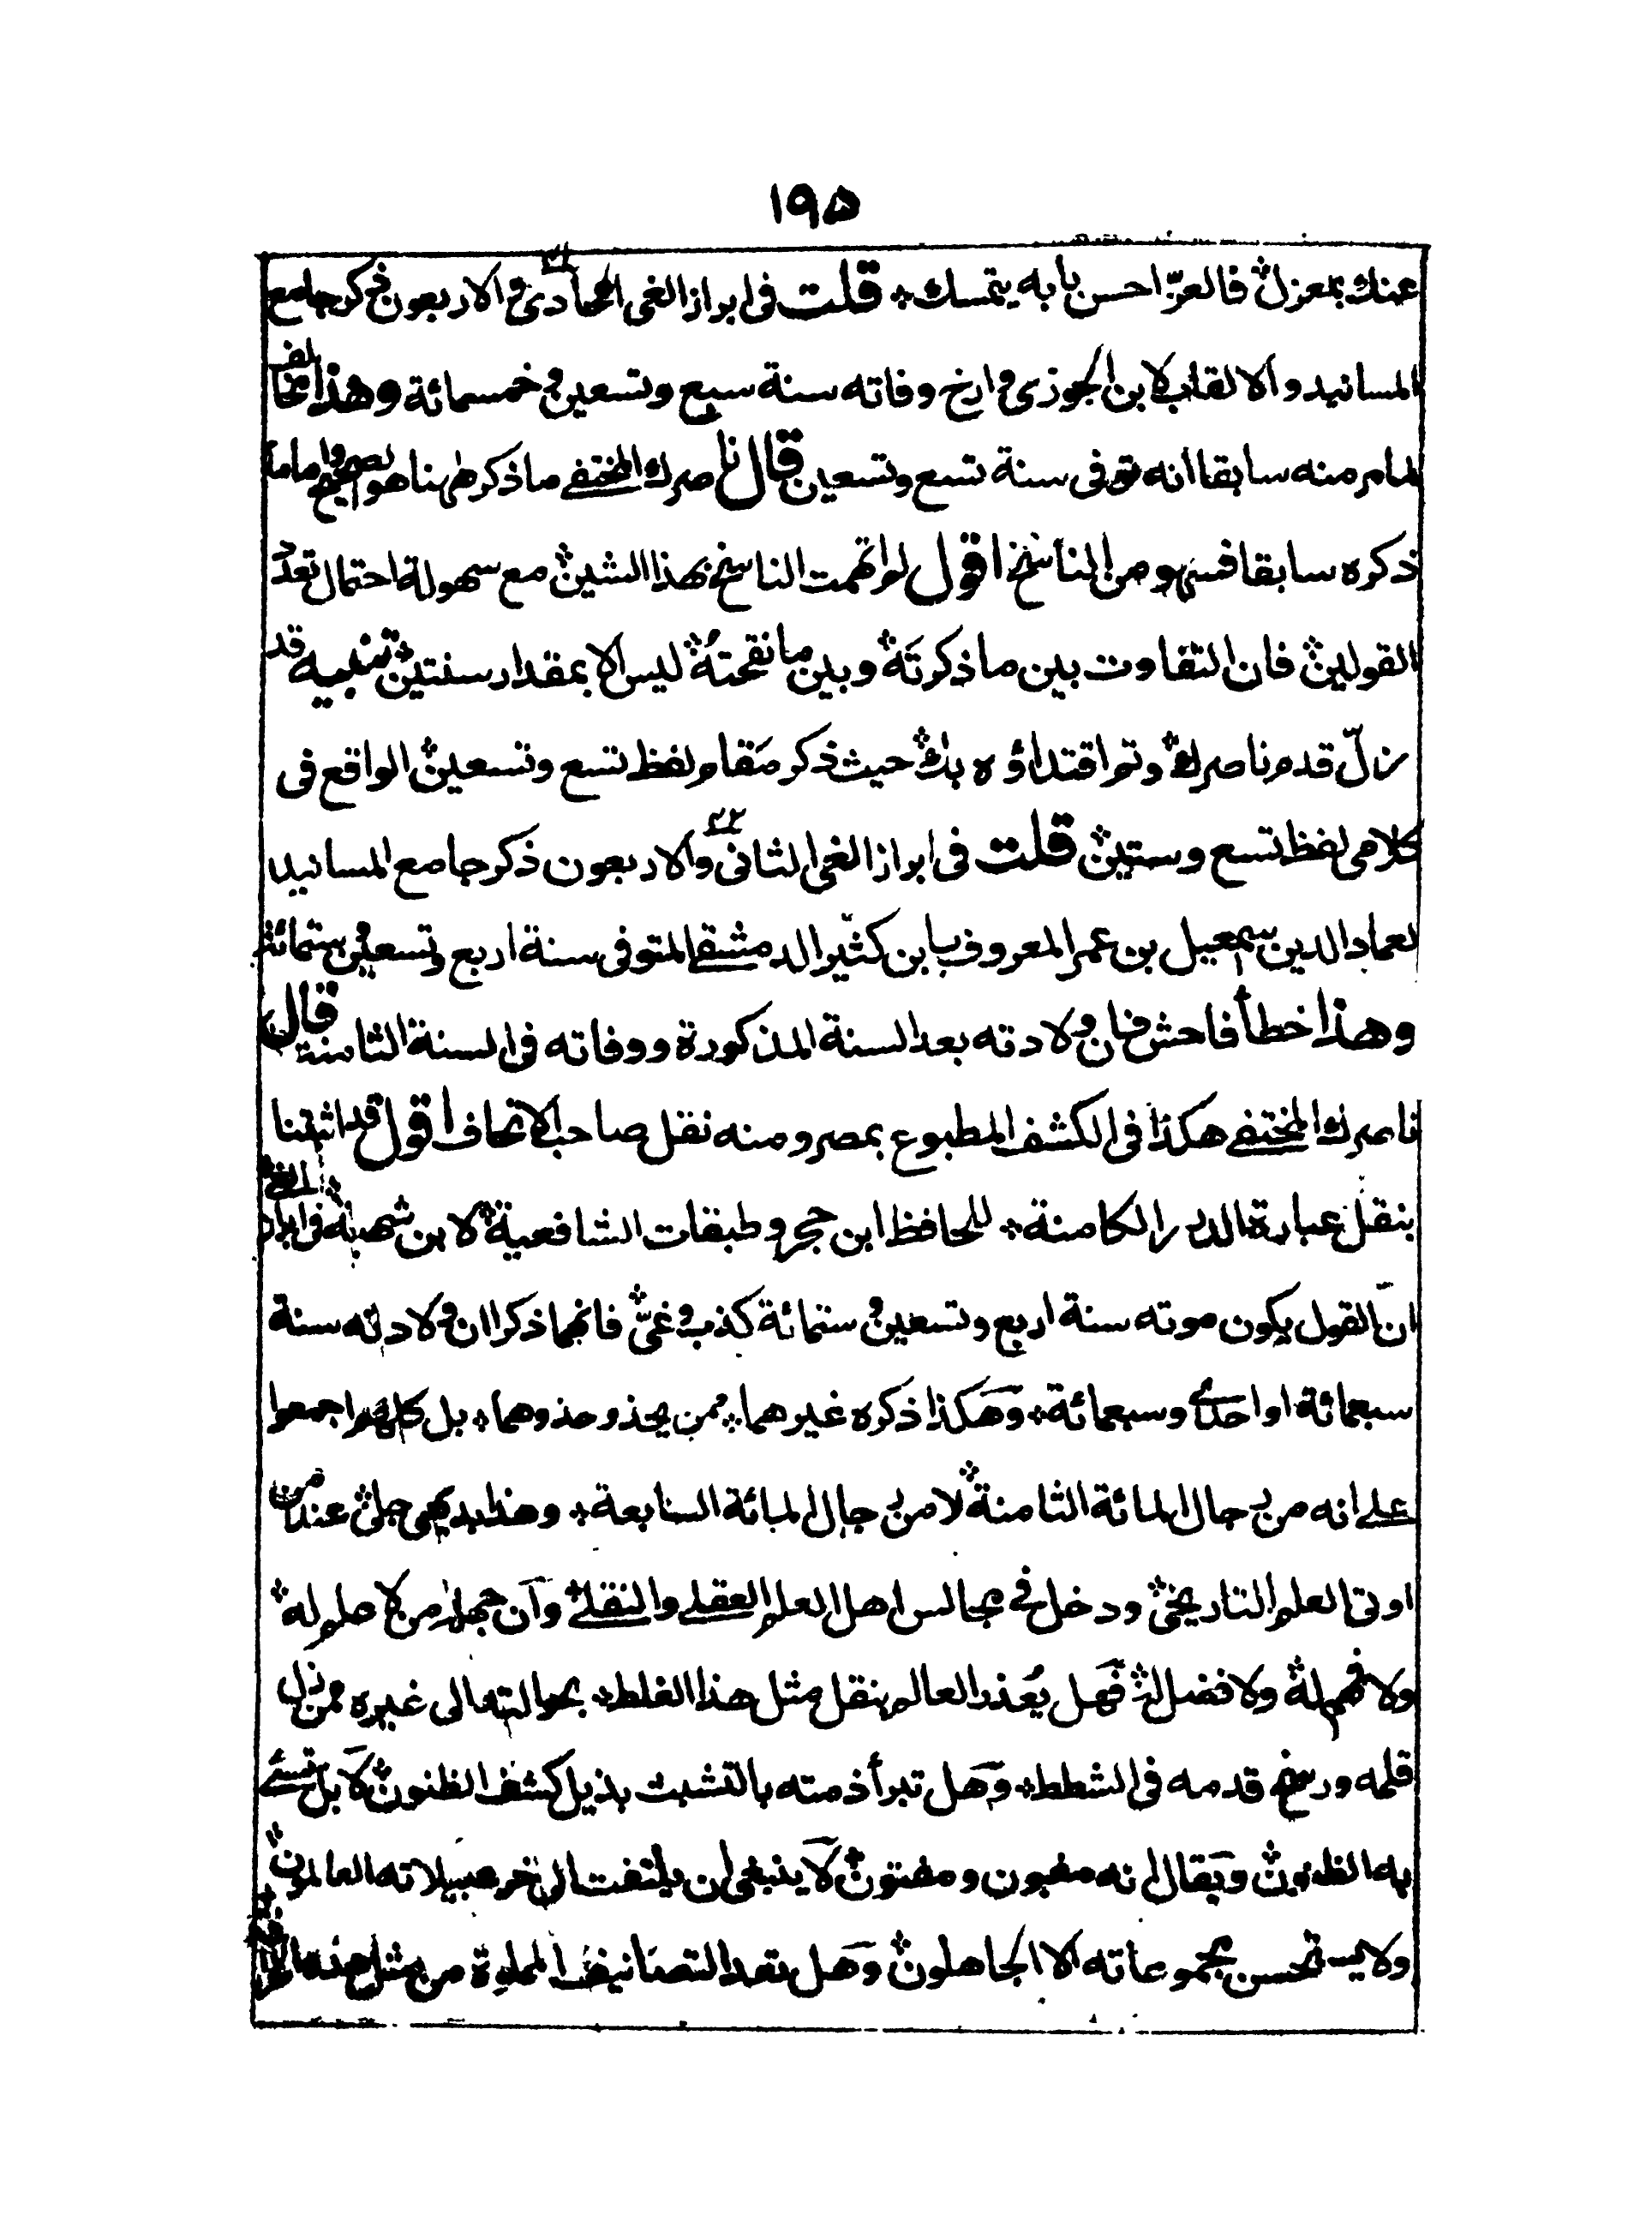 ١٩٥
عنك بمعزل ؞ فالعزّ احسن بابه يتمسك ؞ قلت فى ابراز الغى الحادى والاربعون ذكر جامع
المسانيد والالقاب لابن الجوزى وارخ وفاته سنة سبع وتسعين وخمسمائة وهذا مخالف
لما مر منه سابقا انه توفى سنة تسع وتسعين قال ناصرك المختفے ما ذكر ههنا هو الصحيح واما ما
ذكره سابقا فسهو من الناسخ اقول لم اتهمت الناسخ بهذا الشين ؞ مع سهولة احتمال تعدد
القولين ؞ فان التفاوت بين ما ذكرتَه ؞ وبين ما نقحتهُ ؞ ليس الا بمقدار سنتين ؞ تنبيه قد
زلّ قدم ناصرك ؞ وتم اقتداؤه بك ؞ حيث ذكر مَقام لفظ تسع وتسعين ؞ الواقع فى
كلامى لفظ تسع وستين ؞ قلت فى ابراز الغى الثانى والاربعون ذكر جامع المسانيد
لعماد الدين اسمعيل بن عمر المعروف بابن كثير الدمشقے المتوفى سنة اربع وتسعين وستمائة
وهذا خطأ فاحش فان ولادته بعد السنة المذكورة ووفاته فى السنة الثامنة قال
ناصرك المختفے هكذا فى الكشف المطبوع بمصر ومنه نقل صاحب الاتحاف اقول قد اثبتنا
بنقل عبارة الدرر الكامنة ؞ للحافظ ابن حجر وطبقات الشافعية ؞ لابن شهبة ؞ فى ابراز الغے ؞
انّ القول بكون موته سنة اربع وتسعين وستمائة كذب وغىّ ؞ فانهما ذكرا ان ولادته سنة
سبعمائة او احدے وسبعمائة ؞ وهكذا ذكره غيرهما ؞ ممن يحذو حذوهما ؞ بل كلهم اجمعوا
علے انه من رجال المائة الثامنة ؞ لا من رجال المائة السابعة ؞ وهذا بديهى جلى ؞ عند من
اوتى العلم التاريخى ؞ ودخل فى مجالس اهل العلم العقلے والنقلے ؞ وان جهله من لا علم له ؞
ولا فهم له ؞ ولا فضل له ؞ فهل يُعذر العالم بنقل مثل هذا الغلط ؞ بحوالته الى غيره ممن زل
قلمه ورسخ قدمه فى الشطط ؞ وهل تبرأ ذمته بالتشبث بذيل كشف الظنون ؞ لا بل تسئ
به الظنون ؞ ويقال انه مغبون ومفتون ؞ لا ينبغى ان يلتفت الى خزعبيلاته العالمون ؞
ولا يستحسن مجموعاته الا الجاهلون ؞ وهل تعد التصانيف المملوة من مثل هذه